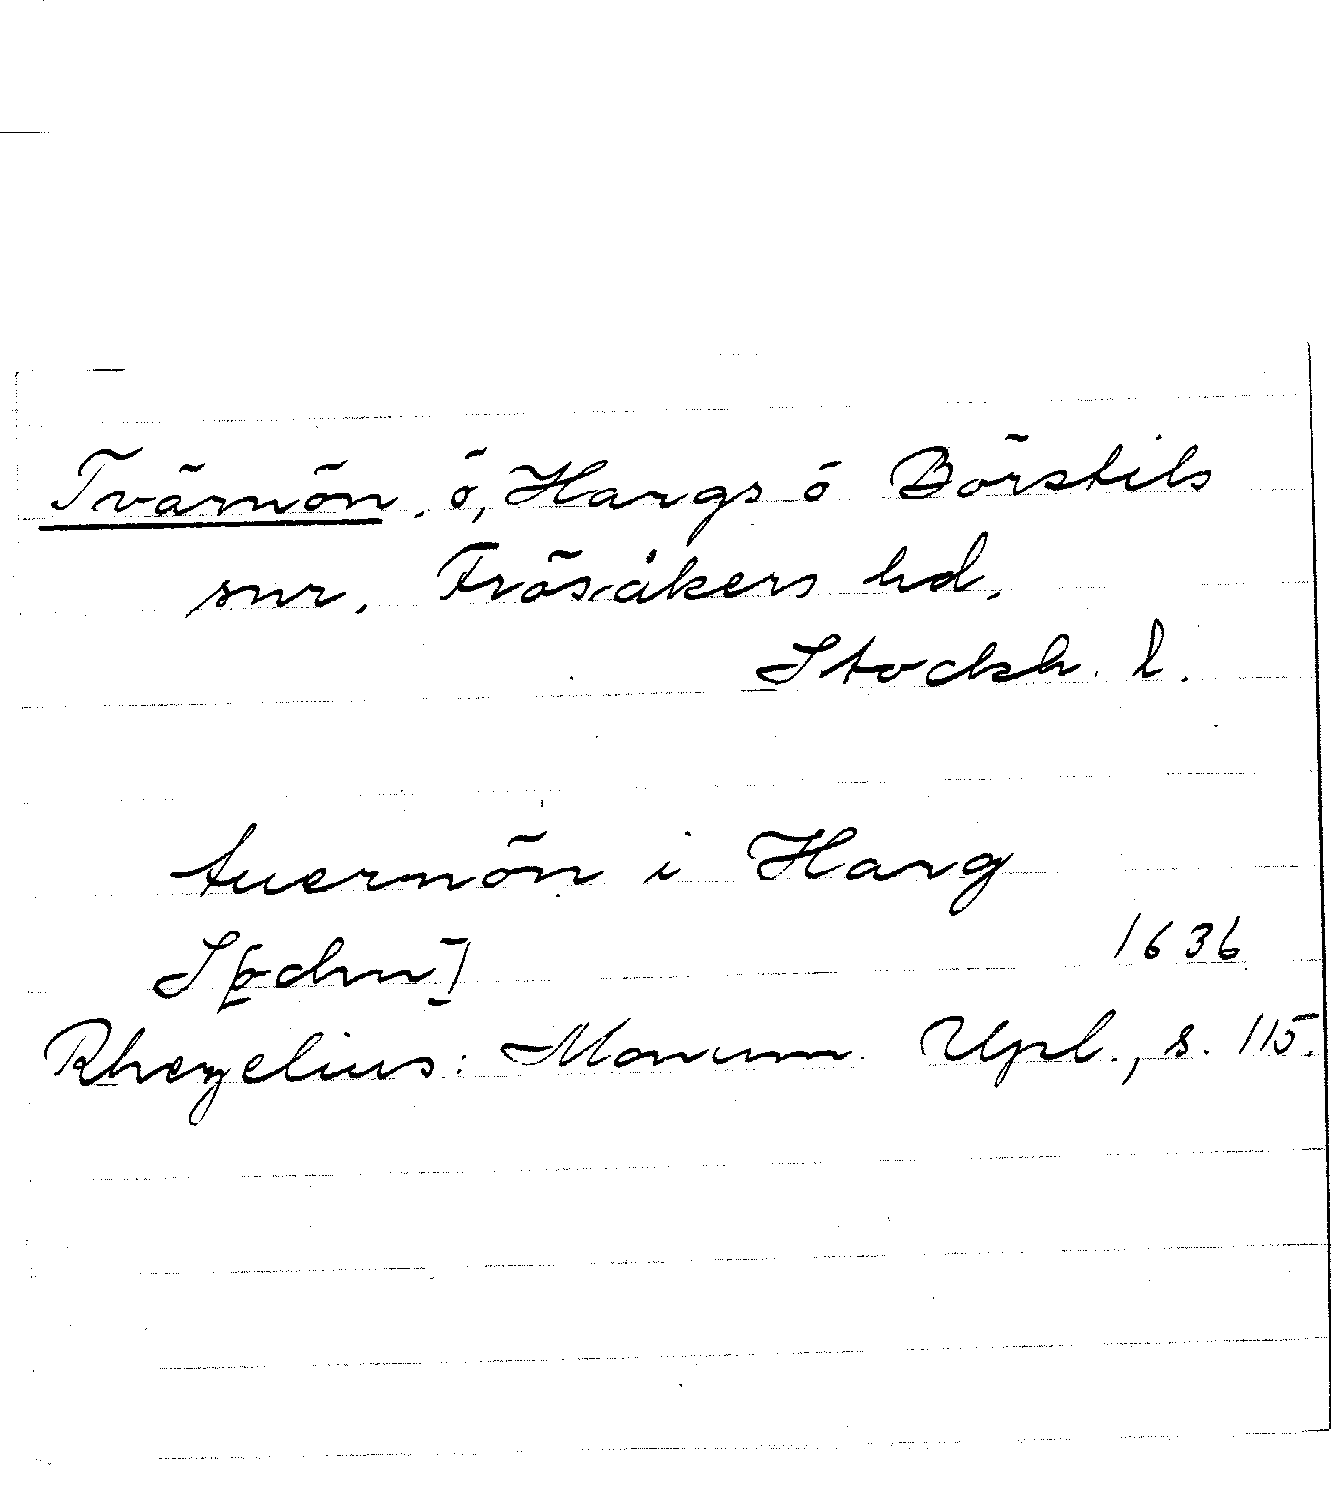 Tvärnön, ö, Hargs o Börstils
snr, Frösåkers hd,
Stockh. l.
tuernön i Harg
S[ochn] 1636
Rhezelius: Monum. Upl., s. 115.